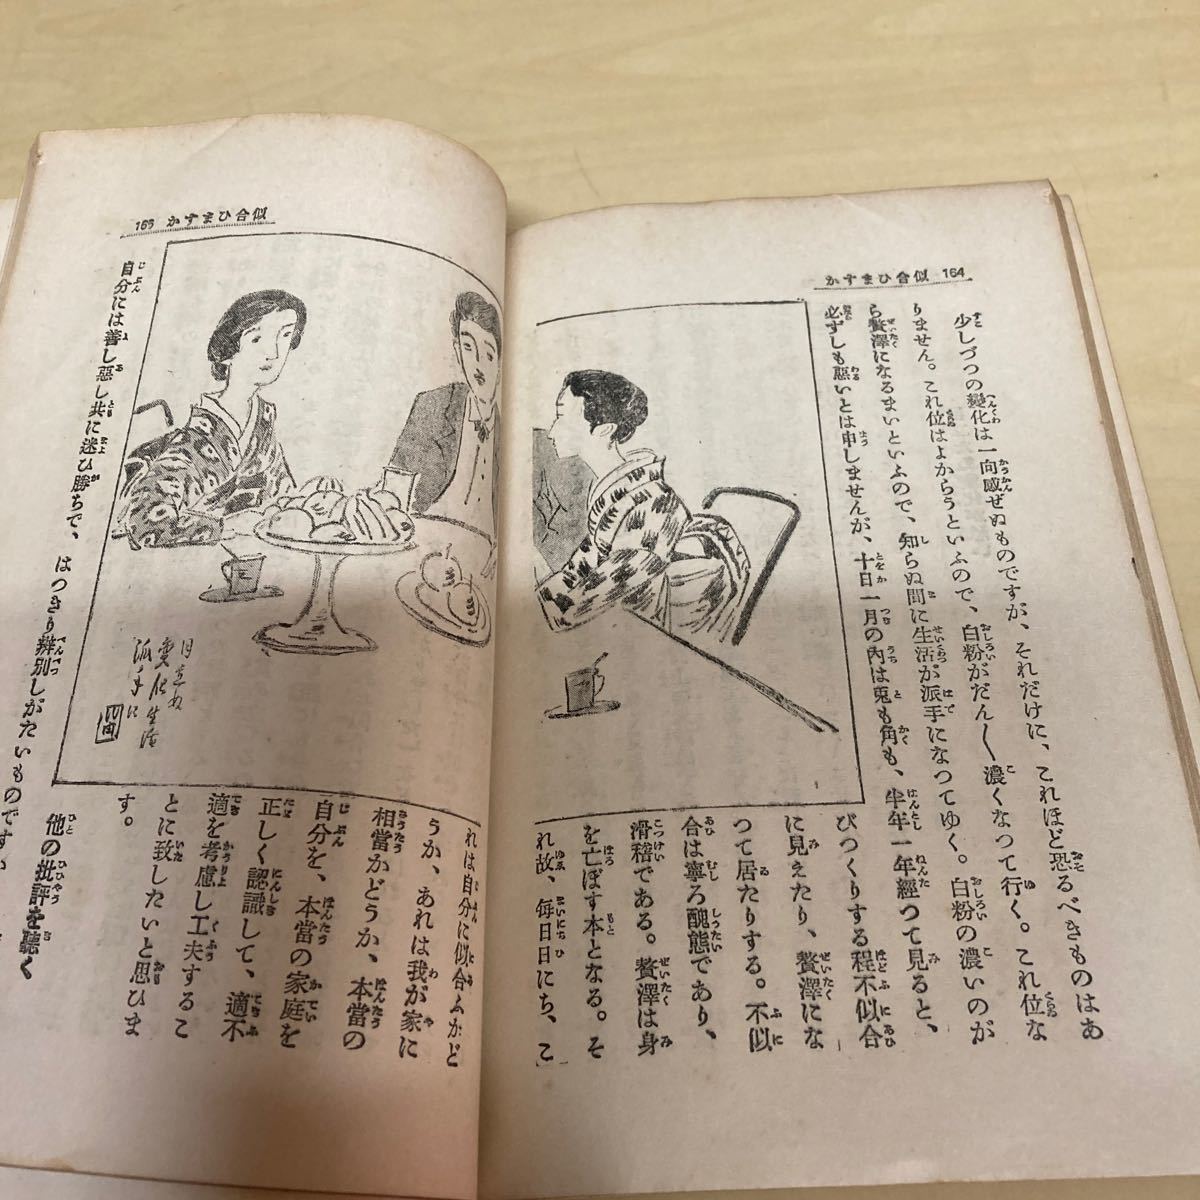 似合ひますか 164
少しづつの變化は一向感ぜぬものですが、それだけに、これほど恐るべきものはあ
りません。これ位はよからうといふので、白粉がだん〱濃くなつて行く。これ位な
ら贅澤になるまいといふので、知らぬ間に生活が派手になつてゆく。白粉の濃いのが
必ずしも惡いとは申しませんが、十日一月の內は兎も角も、半年一年經つて見ると、
びつくりする程不似合
に見えたり、贅澤にな
つて居たりする。不似
合は寧ろ醜態であり、
滑稽である。贅澤は身
を亡ぼす本となる。そ
れ故、每日日にち、こ
似合ひますか 165
れは自分に似合ふかど
うか、あれは我が家に
相當かどうか、本當の
自分を、本當の家庭を
正しく認識して、適不
適を考慮し工夫するこ
とに致したいと思ひま
す。
目立ぬ
變化生活
派手に
自分には善し惡し共に迷ひ勝ちで、はつきり辨別しがたいものです。
他の批評を聽く